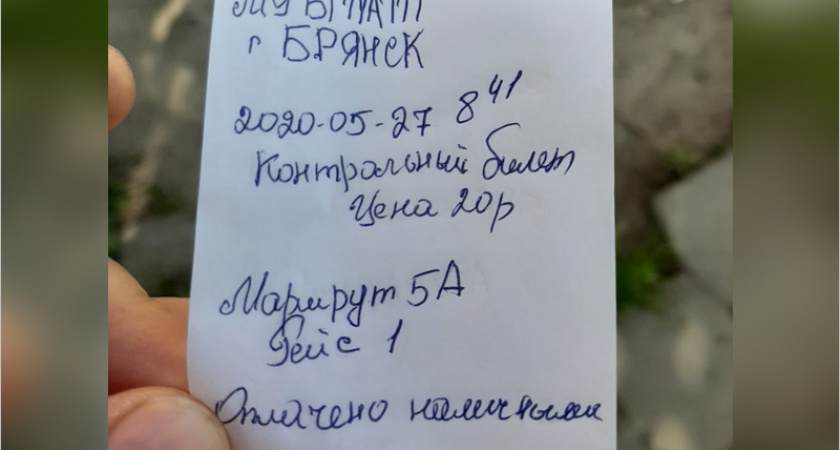 МУ БГПАТП
г БРЯНСК
2020-05-27 8 41
Контрольный билет
Цена 20р
Маршрут 5А
Рейс 1
Оплачено наличными